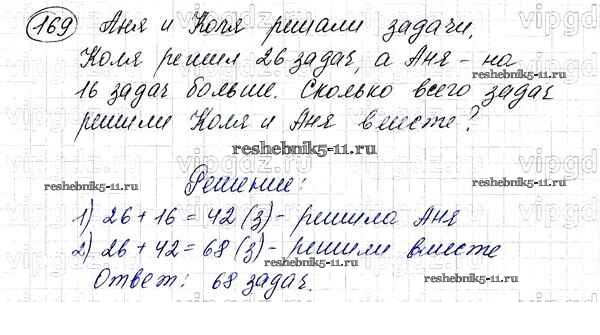 169 Аня и Коля решали задачи,
Коля решил 26 задач, а Аня - на
16 задач больше. Сколько всего задач
решили Коля и Аня вместе?
Решение:
1) 26 + 16 = 42 (з) - решила Аня
2) 26 + 42 = 68 (з) - решили вместе
Ответ: 68 задач.
reshebnik5-11.ru
reshebnik5-11.ru
reshebnik5-11.ru
reshebnik5-11.ru
reshebnik5-11.ru
vipgdz.ru